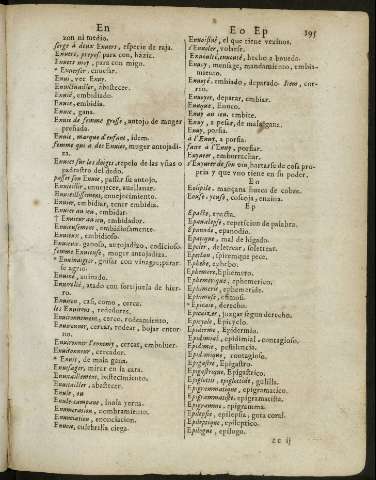 En
Eo Ep
395
zon ni medio.
serge à deux Enuers, especie de raja.
Enuers, prepos. para con, házia.
Enuers moy, para con migo.
* Enuerser, enuesar.
Enui, ver Enuy.
abastecer.
Enuié, embidiado.
Enuie, embidia.
Enuie, gana.
Enuie de femme grosse, antojo de muger
preñada.
Enuie, marque d'enfant, idem.
femme qui a des Enuies, muger antojadi-
za.
Enuies sur les doigts, repelo de las vñas o
padrastro del dedo.
passer son Enuie, passar su antojo.
Enuieillir, enuejecer, auellanar.
Enuieillissement, enuejecimiento.
Enuier, embidiar, tener embidia.
Enuier au ieu, embidar.
† Enuieur au ieu, embidador.
Enuieusement, embidiosamente.
Enuieux, embidioso.
Enuieux, ganoso, antojadizo, codicioso.
femme Enuieuse, muger antojadiza.
* guisar con vinagre; parar-
se agrio.
Enuiné, auinado.
atado con sortijuela de hier-
ro.
Enuiron, casi, como, cerca.
les Enuirons, rededores.
Enuironnement, cerco, rodeamiento.
Enuironner, cercar, rodear, bojar entor-
no.
Enuironner l'ennemy, cercar, embolver.
Enuironneur, cercador.
* Enuis, de mala gana.
Enuisager, mirar en la cara.
Enuitaillement, bastecimiento.
Enuitailler, abastecer.
Enule, en
Enule-campane, inola yerua.
Enumeration, nombramiento.
Enunciation, enunciacion.
culebrilla ciega.
Enuoisiné, el que tiene vezinos.
s'Enuoler, volarse.
hecho a boueda.
Enuoy, mensage, mandamiento, embia-
miento.
Enuoyé, embiado, deputado. Item, cor-
reo.
Enuoyer, deparar, embiar.
Enuque, Eunuco.
Enuy au ieu, embite.
Enuy, a pesar, de mala gana.
Enuy, porfia.
à l'Enuy, a porfia.
faire à l'Enuy, porfiar.
Enyurer, emborrachar.
s'Enyurer de son vin, hartarse de cosa pro-
pria y que vno tiene en su poder.
Eo
Eolipile, mançana hueca de cobre.
coscoja, enzina.
Ep
Epacte, epacta.
Epanalepse, repeticion de palabra.
Epanode, epanodio.
Epatique, mal de higado.
Epeler, deletrear, soletrear.
Epetlan, spirenque pece.
Ephebe, ephebo.
Ephemere, Ephemero.
Ephemerique, ephemerico.
Ephemeride, ephemeride.
* Epicaie, derecho.
Epicaizer, juzgar segun derecho.
Epicycle, Epicyclo.
Epiderme, Epiderma.
Epidimial, epidimial, contagioso.
Epidimie, pestilencia.
Epidimique, contagioso.
Epigastre, Epigastro.
Epigastrique, Epigastrico.
Epiglotte, epiglotide, gulilla.
Epigrammatique, epigramatico.
Epigrammatiste, epigramatista.
Epigramme, epigramma.
Epilepsie, epilepsia, gota coral.
Epileptique, epileptico.
Epilogue, epilogo.
cc ij